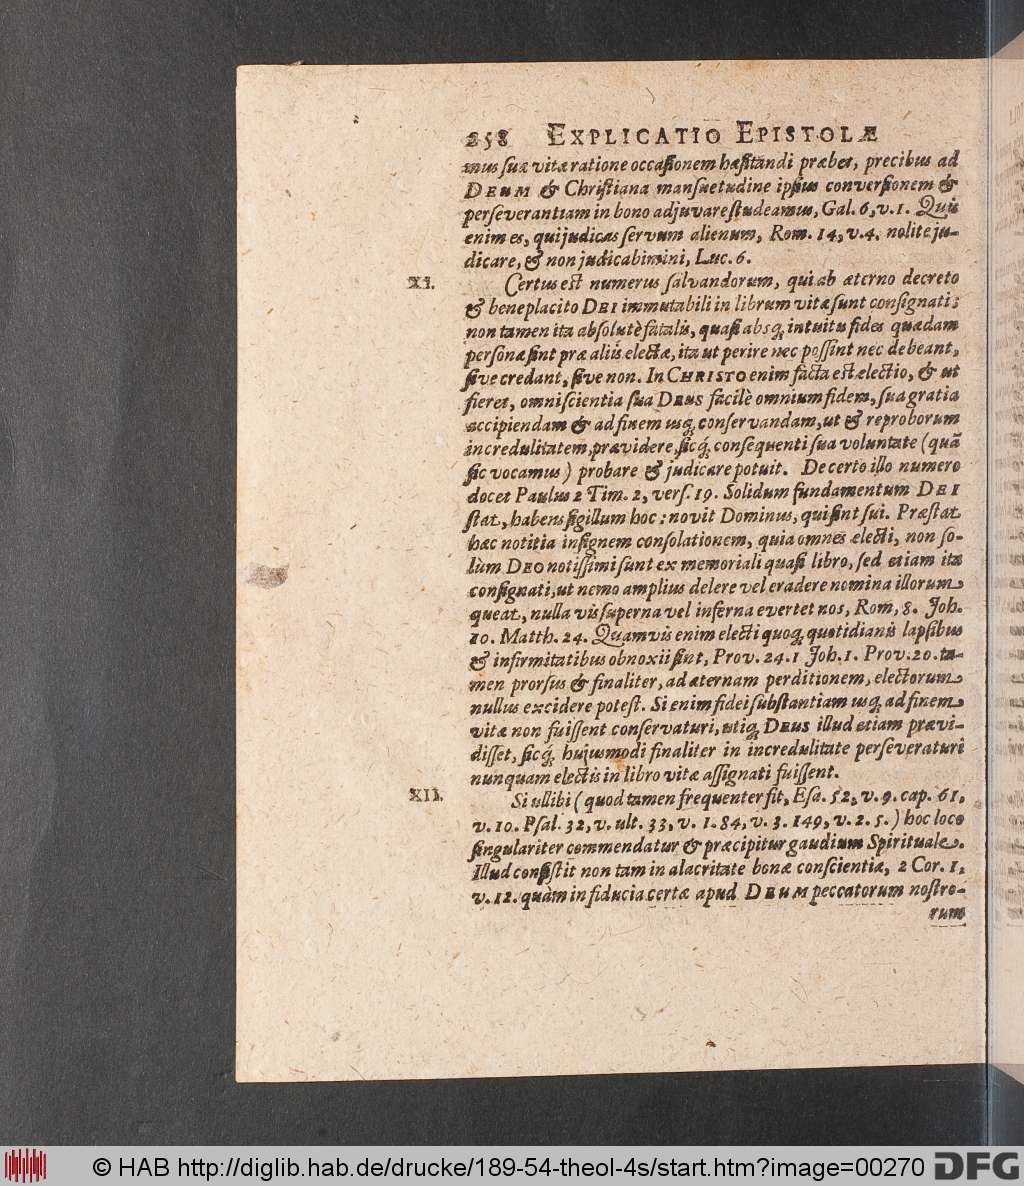 258 EXPLICATIO EPISTOLÆ
mus suæ vitæ ratione occasionem hæsitandi præbet, precibus ad
DEUM & Christiana mansuetudine ipsius conversionem &
perseverantiam in bono adjuvare studeamus, Gal. 6, v. 1. Quis
enim es, qui judicas servum alienum, Rom. 14, v. 4. nolite ju-
dicare, & non judicabimini, Luc. 6.
XI. Certus est numerus salvandorum, qui ab æterno decreto
& beneplacito DEI immutabili in librum vitæ sunt consignati:
non tamen ita absolutè fatalis, quasi absq; intuitu fidei quædam
personæ sint præ aliis electæ, ita ut perire nec possint nec debeant,
sive credant, sive non. In CHRISTO enim facta est electio, & ut
fieret, omniscientia sua DEUS facilè omnium fidem, sua gratia
accipiendam & ad finem usq; conservandam, ut & reproborum
incredulitatem, prævidere, sicq́; consequenti sua voluntate (quã
sic vocamus) probare & judicare potuit. De certo illo numero
docet Paulus 2 Tim. 2, vers. 19. Solidum fundamentum DEI
stat, habens sigillum hoc: novit Dominus, qui sint sui. Præstat
hæc notitia insignem consolationem, quia omnes electi, non so-
lùm DEO notissimi sunt ex memoriali quasi libro, sed etiam ita
consignati, ut nemo amplius delere vel eradere nomina illorum
queat, nulla vis superna vel inferna evertet nos, Rom, 8. Joh.
10. Matth. 24. Quamvis enim electi quoq; quotidianis lapsibus
& infirmitatibus obnoxii sint, Prov. 24. 1 Joh. 1. Prov. 20. ta-
men prorsus & finaliter, ad æternam perditionem, electorum
nullus excidere potest. Si enim fidei substantiam usq; ad finem
vitæ non fuissent conservaturi, utiq; DEUS illud etiam prævi-
disset, sicq́; hujusmodi finaliter in incredulitate perseveraturi
nunquam electis in libro vitæ assignati fuissent.
XII. Si ullibi (quod tamen frequenter fit, Esa. 52, v. 9. cap. 61,
v. 10. Psal. 32, v. ult. 33, v. 1. 84, v. 3. 149, v. 2. 5.) hoc loco
singulariter commendatur & præcipitur gaudium Spirituale.
Illud consistit non tam in alacritate bonæ conscientiæ, 2 Cor. 1,
v. 12. quàm in fiducia certæ apud DEUM peccatorum nostro-
rum
© HAB http://diglib.hab.de/drucke/189-54-theol-4s/start.htm?image=00270 DFG